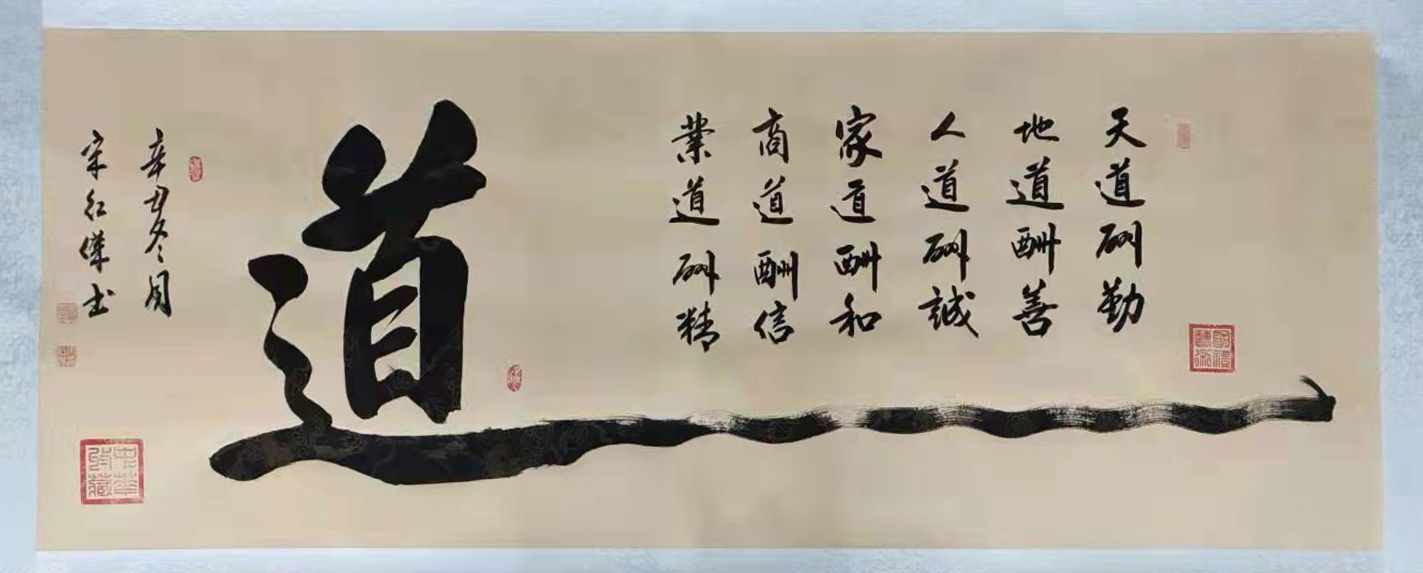 天道酬勤
地道酬善
人道酬誠
家道酬和
商道酬信
業道酬精
道
辛丑冬月
宋紅偉书